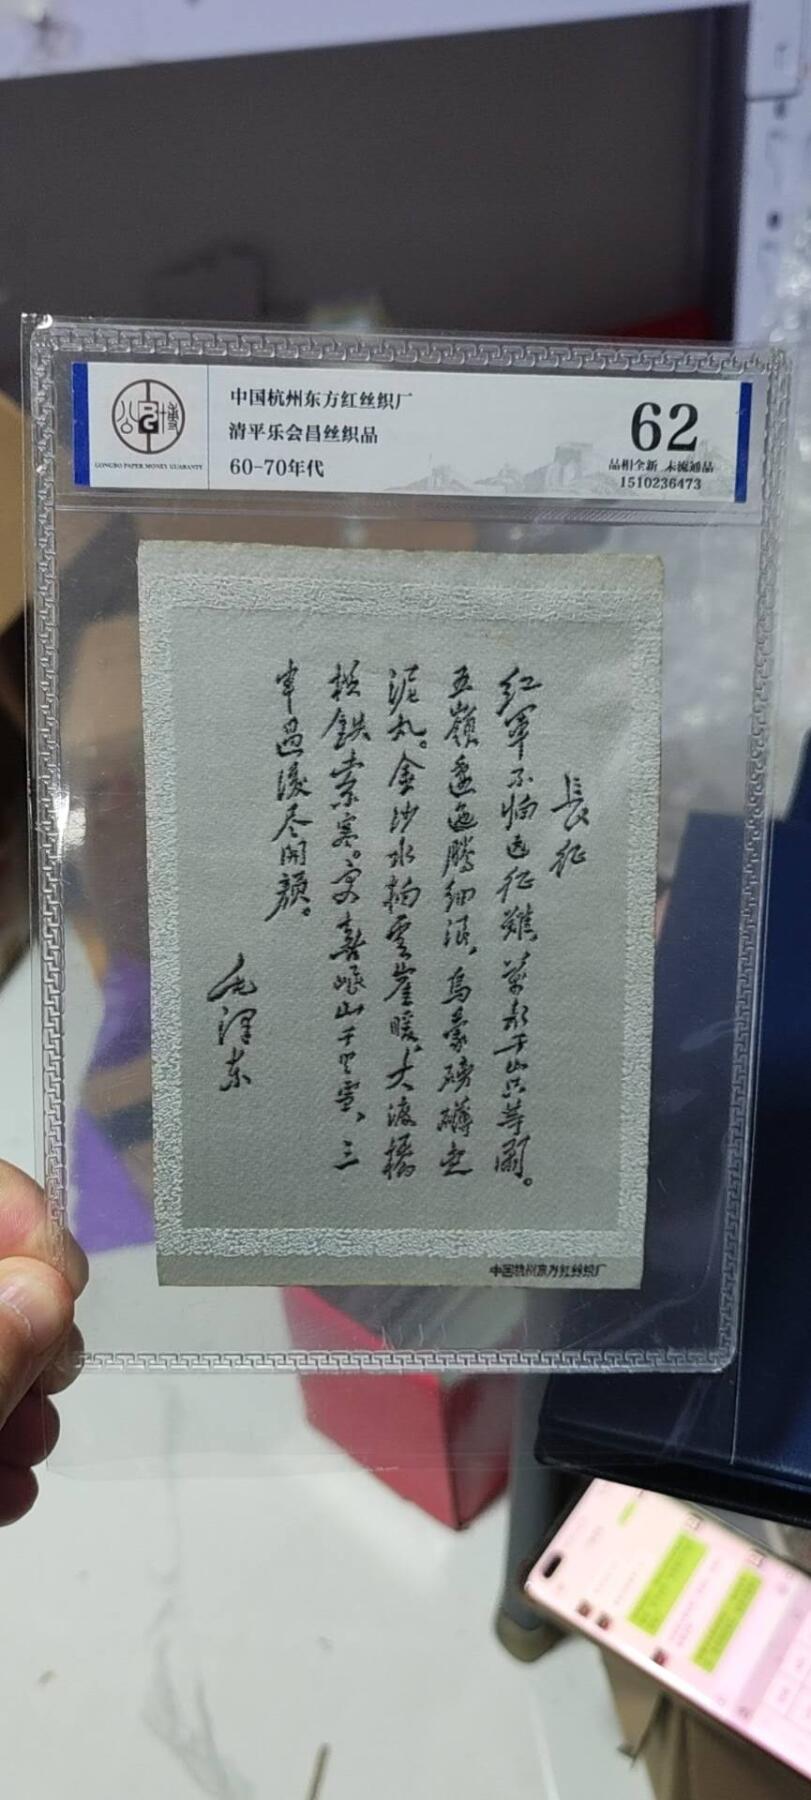 公博
GONGBO PAPER MONEY GUARANTY
中国杭州东方红丝织厂
清平乐会昌丝织品
60-70年代
62
品相全新 未流通品
1510236473
長征
红军不怕远征難，萬水千山只等闲。
五嶺逶迤腾细浪，烏蒙磅礴走
泥丸。金沙水拍雲崖暖，大渡橋
横鉄索寒。更喜岷山千里雪，三
軍过後尽開顔。
毛泽东
中国杭州东方红丝织厂